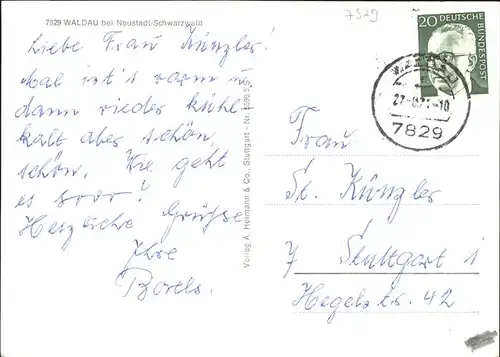 7829 WALDAU bei Neustadt/Schwarzwald
7829
Liebe Frau Künzler!
Mal ist's warm u
dann wieder kühl
kalt aber schön,
schön. Wie geht
es
Herzliche Grüsse
Ihre
Verlag A. Heimann & Co., Stuttgart - Nr.
20 DEUTSCHE
BUNDESPOST
7829
Frau
St. Künzler
7 Stuttgart 1
Hegelstr. 42